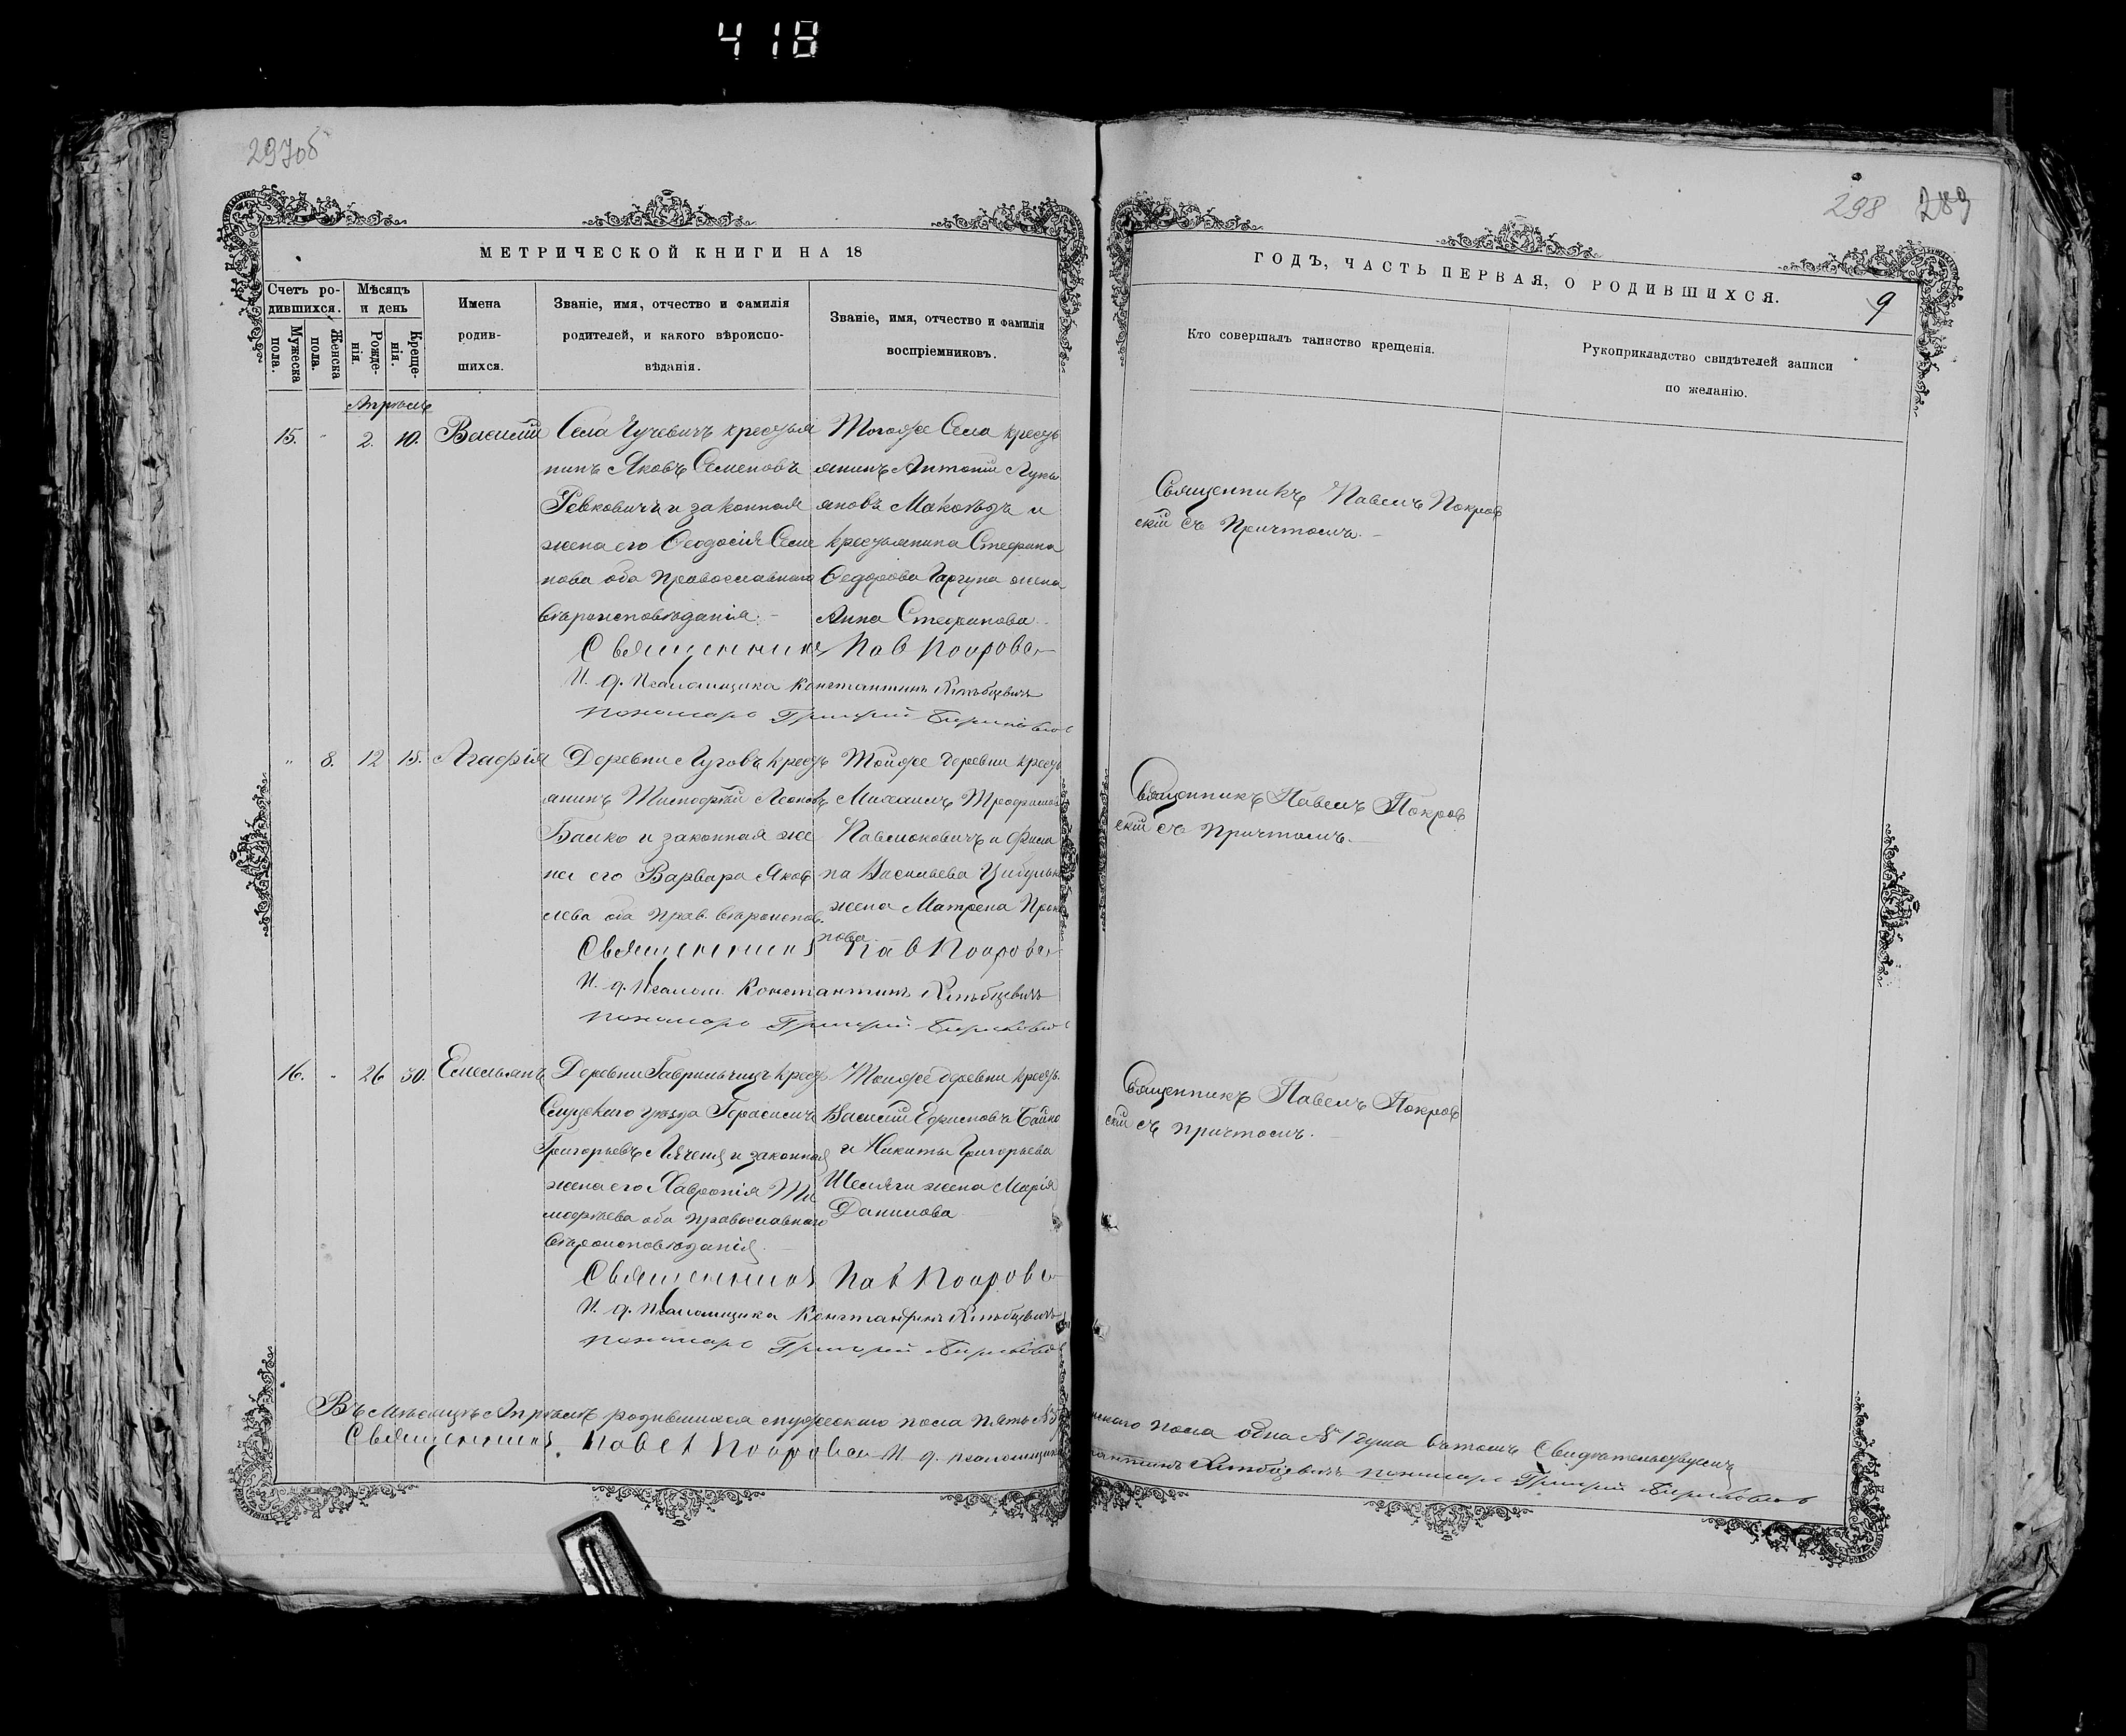 418
297об
298 289
МЕТРИЧЕСКОЙ КНИГИ НА 18
ГОДЪ, ЧАСТЬ ПЕРВАЯ, О РОДИВШИХСЯ.
9
Счетъ ро-
дившихся.
Мужеска пола.
Женска пола.
Мѣсяцъ
и день
Рожде-
нія.
Креще-
нія.
Имена
родив-
шихся.
Званіе, имя, отчество и фамилія
родителей, и какого вѣроиспо-
вѣданія.
Званіе, имя, отчество и фамилія
воспріемниковъ.
Кто совершалъ таинство крещенія.
Рукоприкладство свидѣтелей записи
по желанію.
Апрѣль
15. " 2. 10. Василій
Села Чучевичъ крестья
нинъ Яковъ Семеновъ
Ревковичъ и законная
жена его Ѳеодосія Семе
нова оба православнаго
вѣроисповѣданія.
Тогоже Села кресть
янинъ Антоній Лукь
яновъ Маковѣдъ и
крестьянина Стефана
Ѳедорова Гаргуна жена
Анна Стефанова.
Священникъ Павелъ Покров
скій съ Причтомъ.
Священникъ Пав Покров
И. д. Псаломщика Константинъ
Пономарь Григорій
" 8. 12 15. Агафія
Деревни Луговъ кресть
янинъ Тимофей Леоновъ
Балко и законная же
на его Варвара Яков
лева оба прав. вѣроиспов.
Тойже деревни кресть
Михаилъ Трофимов
Павлюковичъ и Фили
па Васильева Цибульк
жена Матрена Прок
пова
Священникъ Павелъ Покров
скій съ Причтомъ.
Священникъ Пав Покров
И. д. Псалом. Константинъ
Пономарь Григорій
16. " 26 30. Емельянъ
Деревни Гаврильчицъ крест
Слуцкаго уѣзда Герасимъ
Григорьевъ и законная
жена его Хавронія Ти
мофѣева оба православнаго
вѣроисповѣданія.
Тойже деревни кресть.
Василій Ефимовъ Байко
и Никиты Григорьева
Шеляги жена Марія
Данилова
Священникъ Павелъ Покров
скій съ причтомъ.
Священникъ Пав Покров
И. д. Псаломщика Константинъ
Пономарь Григорій
Въ мѣсяцѣ Апрѣлѣ родившихся мужескаго пола пять №5 нскаго пола одна №1 душа въ томъ Свидѣтельствуемъ
Священникъ Павел Покровскій И. д. псаломщика антинъ пономарь Григорій